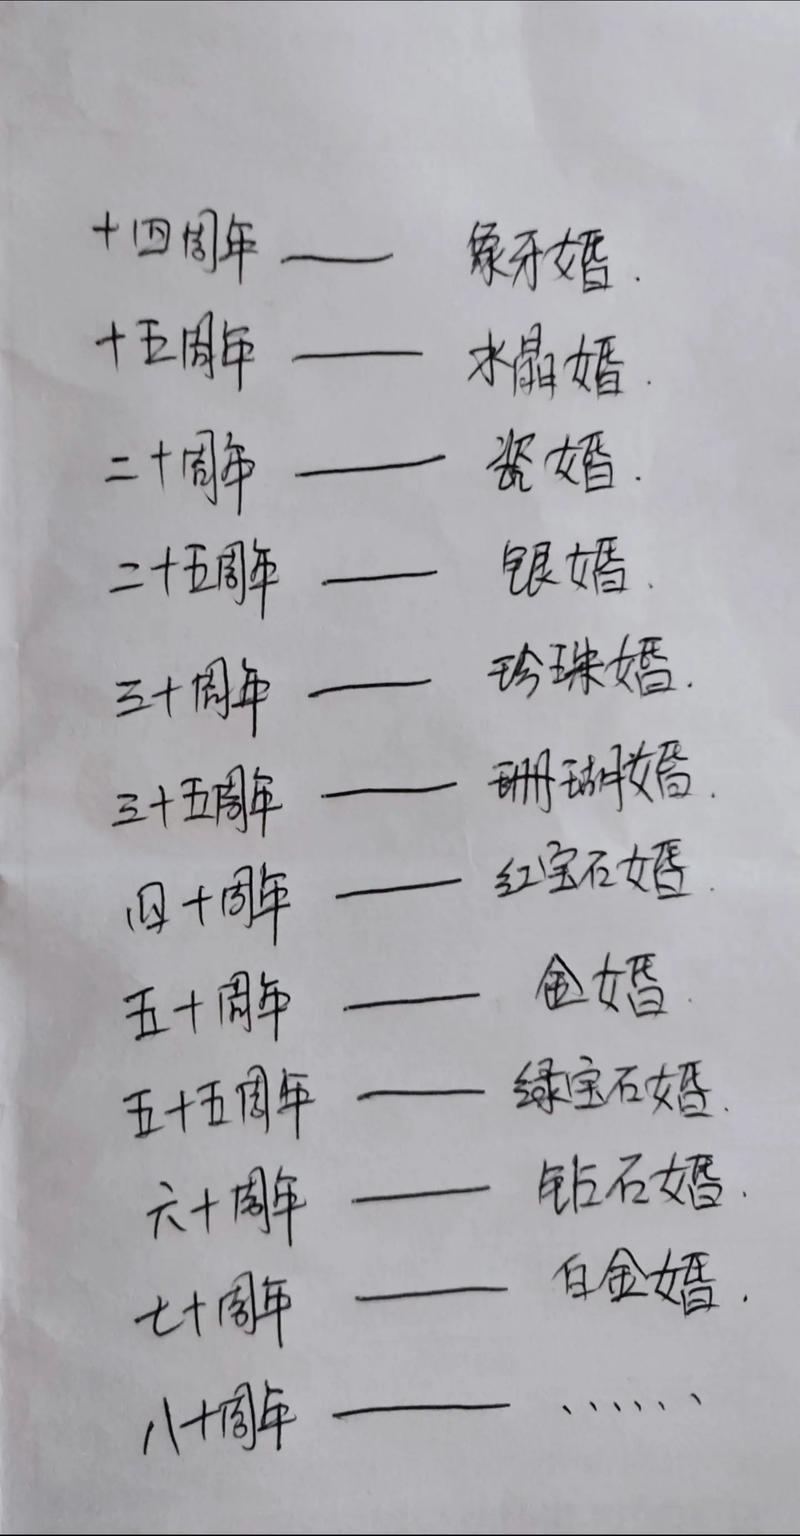 十四周年——象牙婚.
十五周年——水晶婚.
二十周年——瓷婚.
二十五周年——银婚.
三十周年——珍珠婚.
三十五周年——珊瑚婚.
四十周年——红宝石婚.
五十周年——金婚.
五十五周年——绿宝石婚.
六十周年——钻石婚.
七十周年——白金婚.
八十周年——......